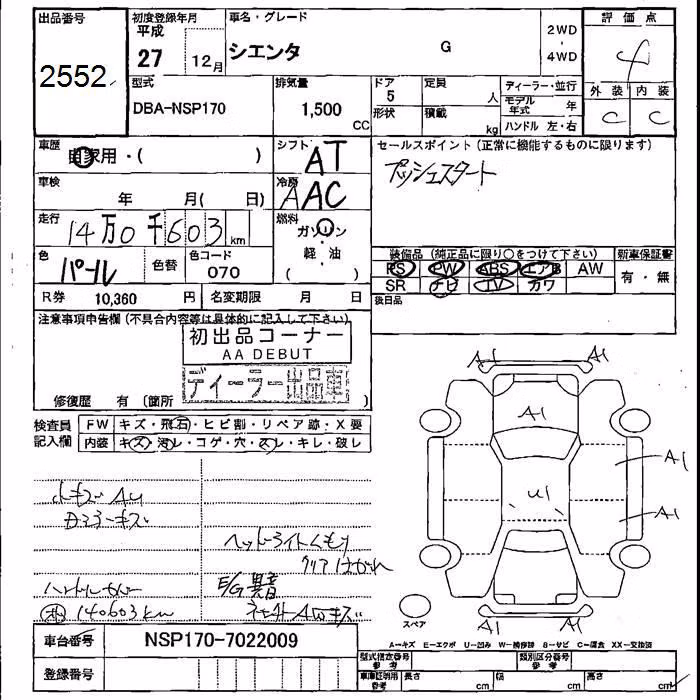 出品番号 初度登録年月 車名・グレード 評価点
平成 2WD
2552 27 12月 シエンタ G ・ 4
4WD
型式 排気量 ドア 定員 ディーラー・並行 外装 内装
DBA-NSP170 1,500 CC 5 人 モデル年式 年 C C
形状 積載 kg ハンドル 左・右
車歴 自家用・( ) シフト AT セールスポイント(正常に機能するものに限ります)
車検 年 月( 日) 冷房 AAC プッシュスタート
走行 14万0千603km 燃料 ガソリン
色 パール 色替 色コード 070 軽・油 ( ) 装備品(純正品に限り○をつけて下さい) 新車保証書
PS PW ABS エアB AW 有・無
R券 10,360 円 名変期限 月 日 SR ナビ TV カワ
後日品
注意事項申告欄(不具合内容等は具体的に記入して下さい)
初出品コーナー
AA DEBUT
ディーラー出品車
修復歴 有(箇所 )
検査員記入欄 FW キズ・飛石・ヒビ割・リペア跡・X要
内装 キズ・汚レ・コゲ・穴・スレ・キレ・破レ
A1 A1
A1
A1
U1
A1
ヘッドライトくもり
クリアはがれ
E/G異音
140603km
スペア
A1 A1
A−キズ E−エクボ U−凹み W−補修跡 S−サビ C−腐食 XX−交換済
車台番号 NSP170-7022009
型式指定番号 参考 類別区分番号 参考
登録番号 車庫証明用 参考 長さ cm 幅 cm 高さ cm